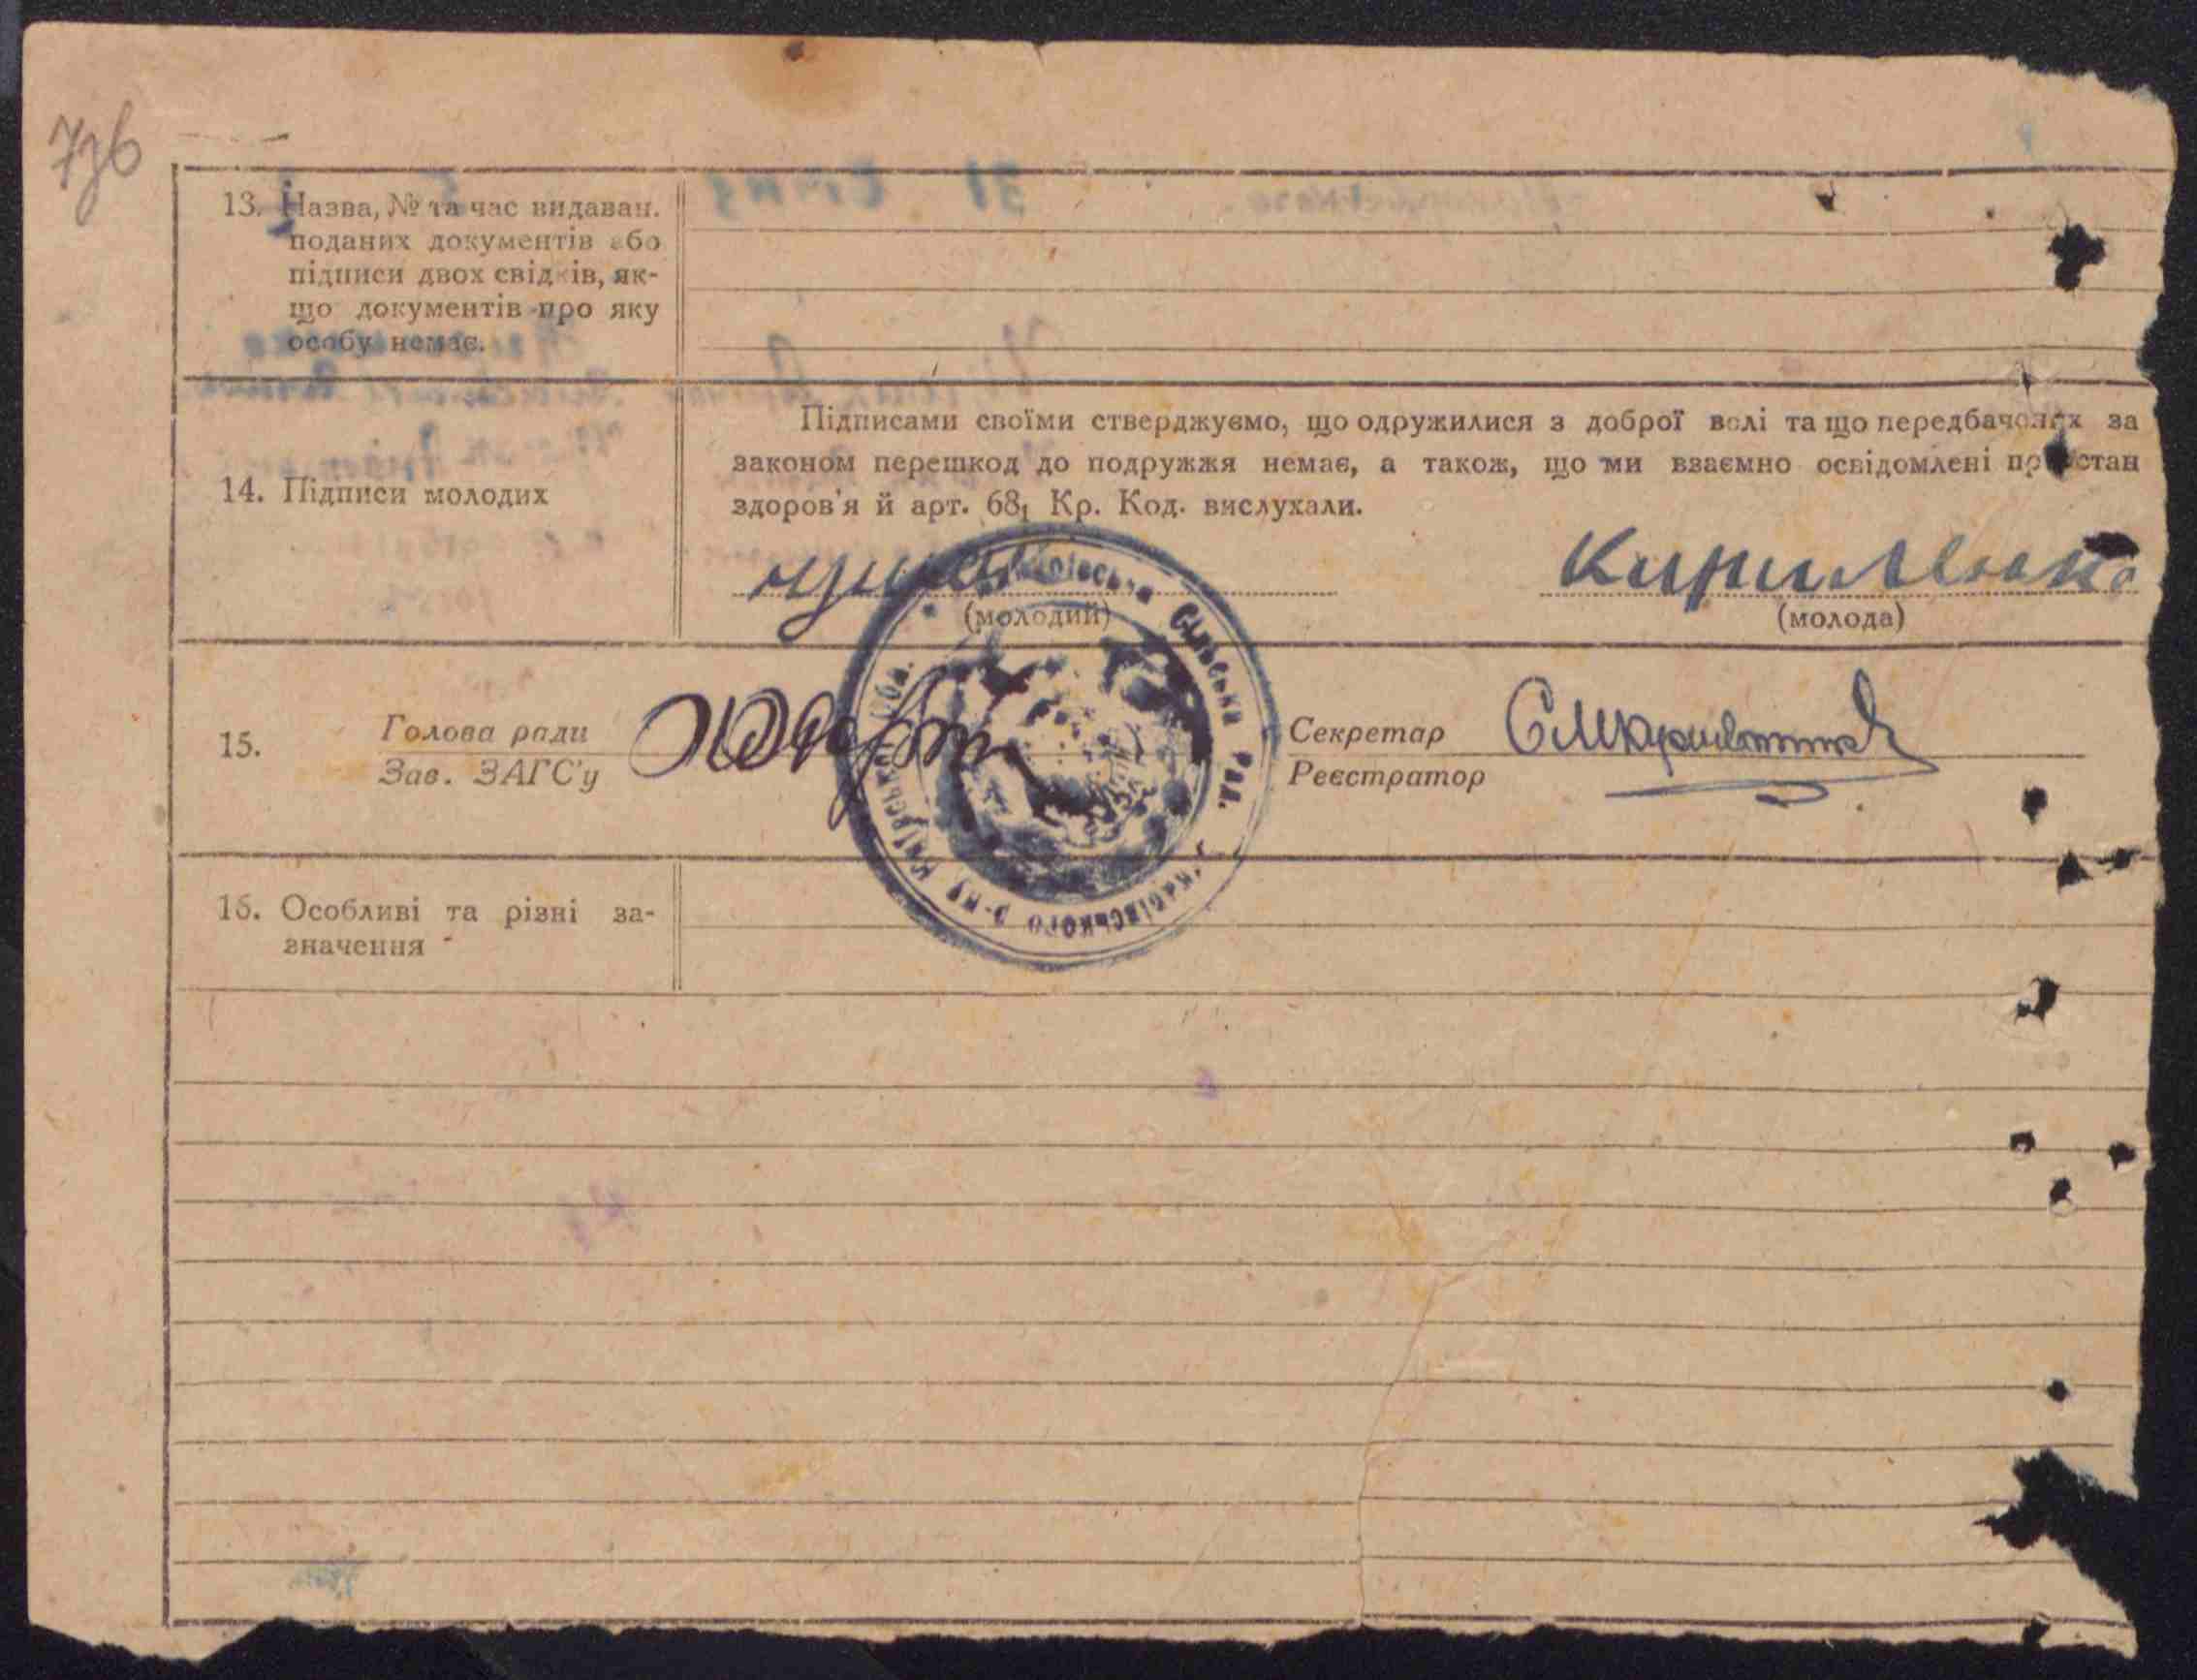 13. Назва, № та час видаван.
поданих документів або
підписи двох свідків, як-
що документів про яку
особу немає.
14. Підписи молодих
Підписами своїми стверджуємо, що одружилися з доброї волі та що передбачених за
законом перешкод до подружжя немає, а також, що ми взаємно освідомлені про стан
здоров'я й арт. 68₁ Кр. Код. вислухали.
Кириленко
(молодий)
(молода)
15.
Голова ради
Зав. ЗАГС'у
Секретар
Реєстратор
Сільська Рада
р-ну Київської Обл.
16. Особливі та різні за-
значення